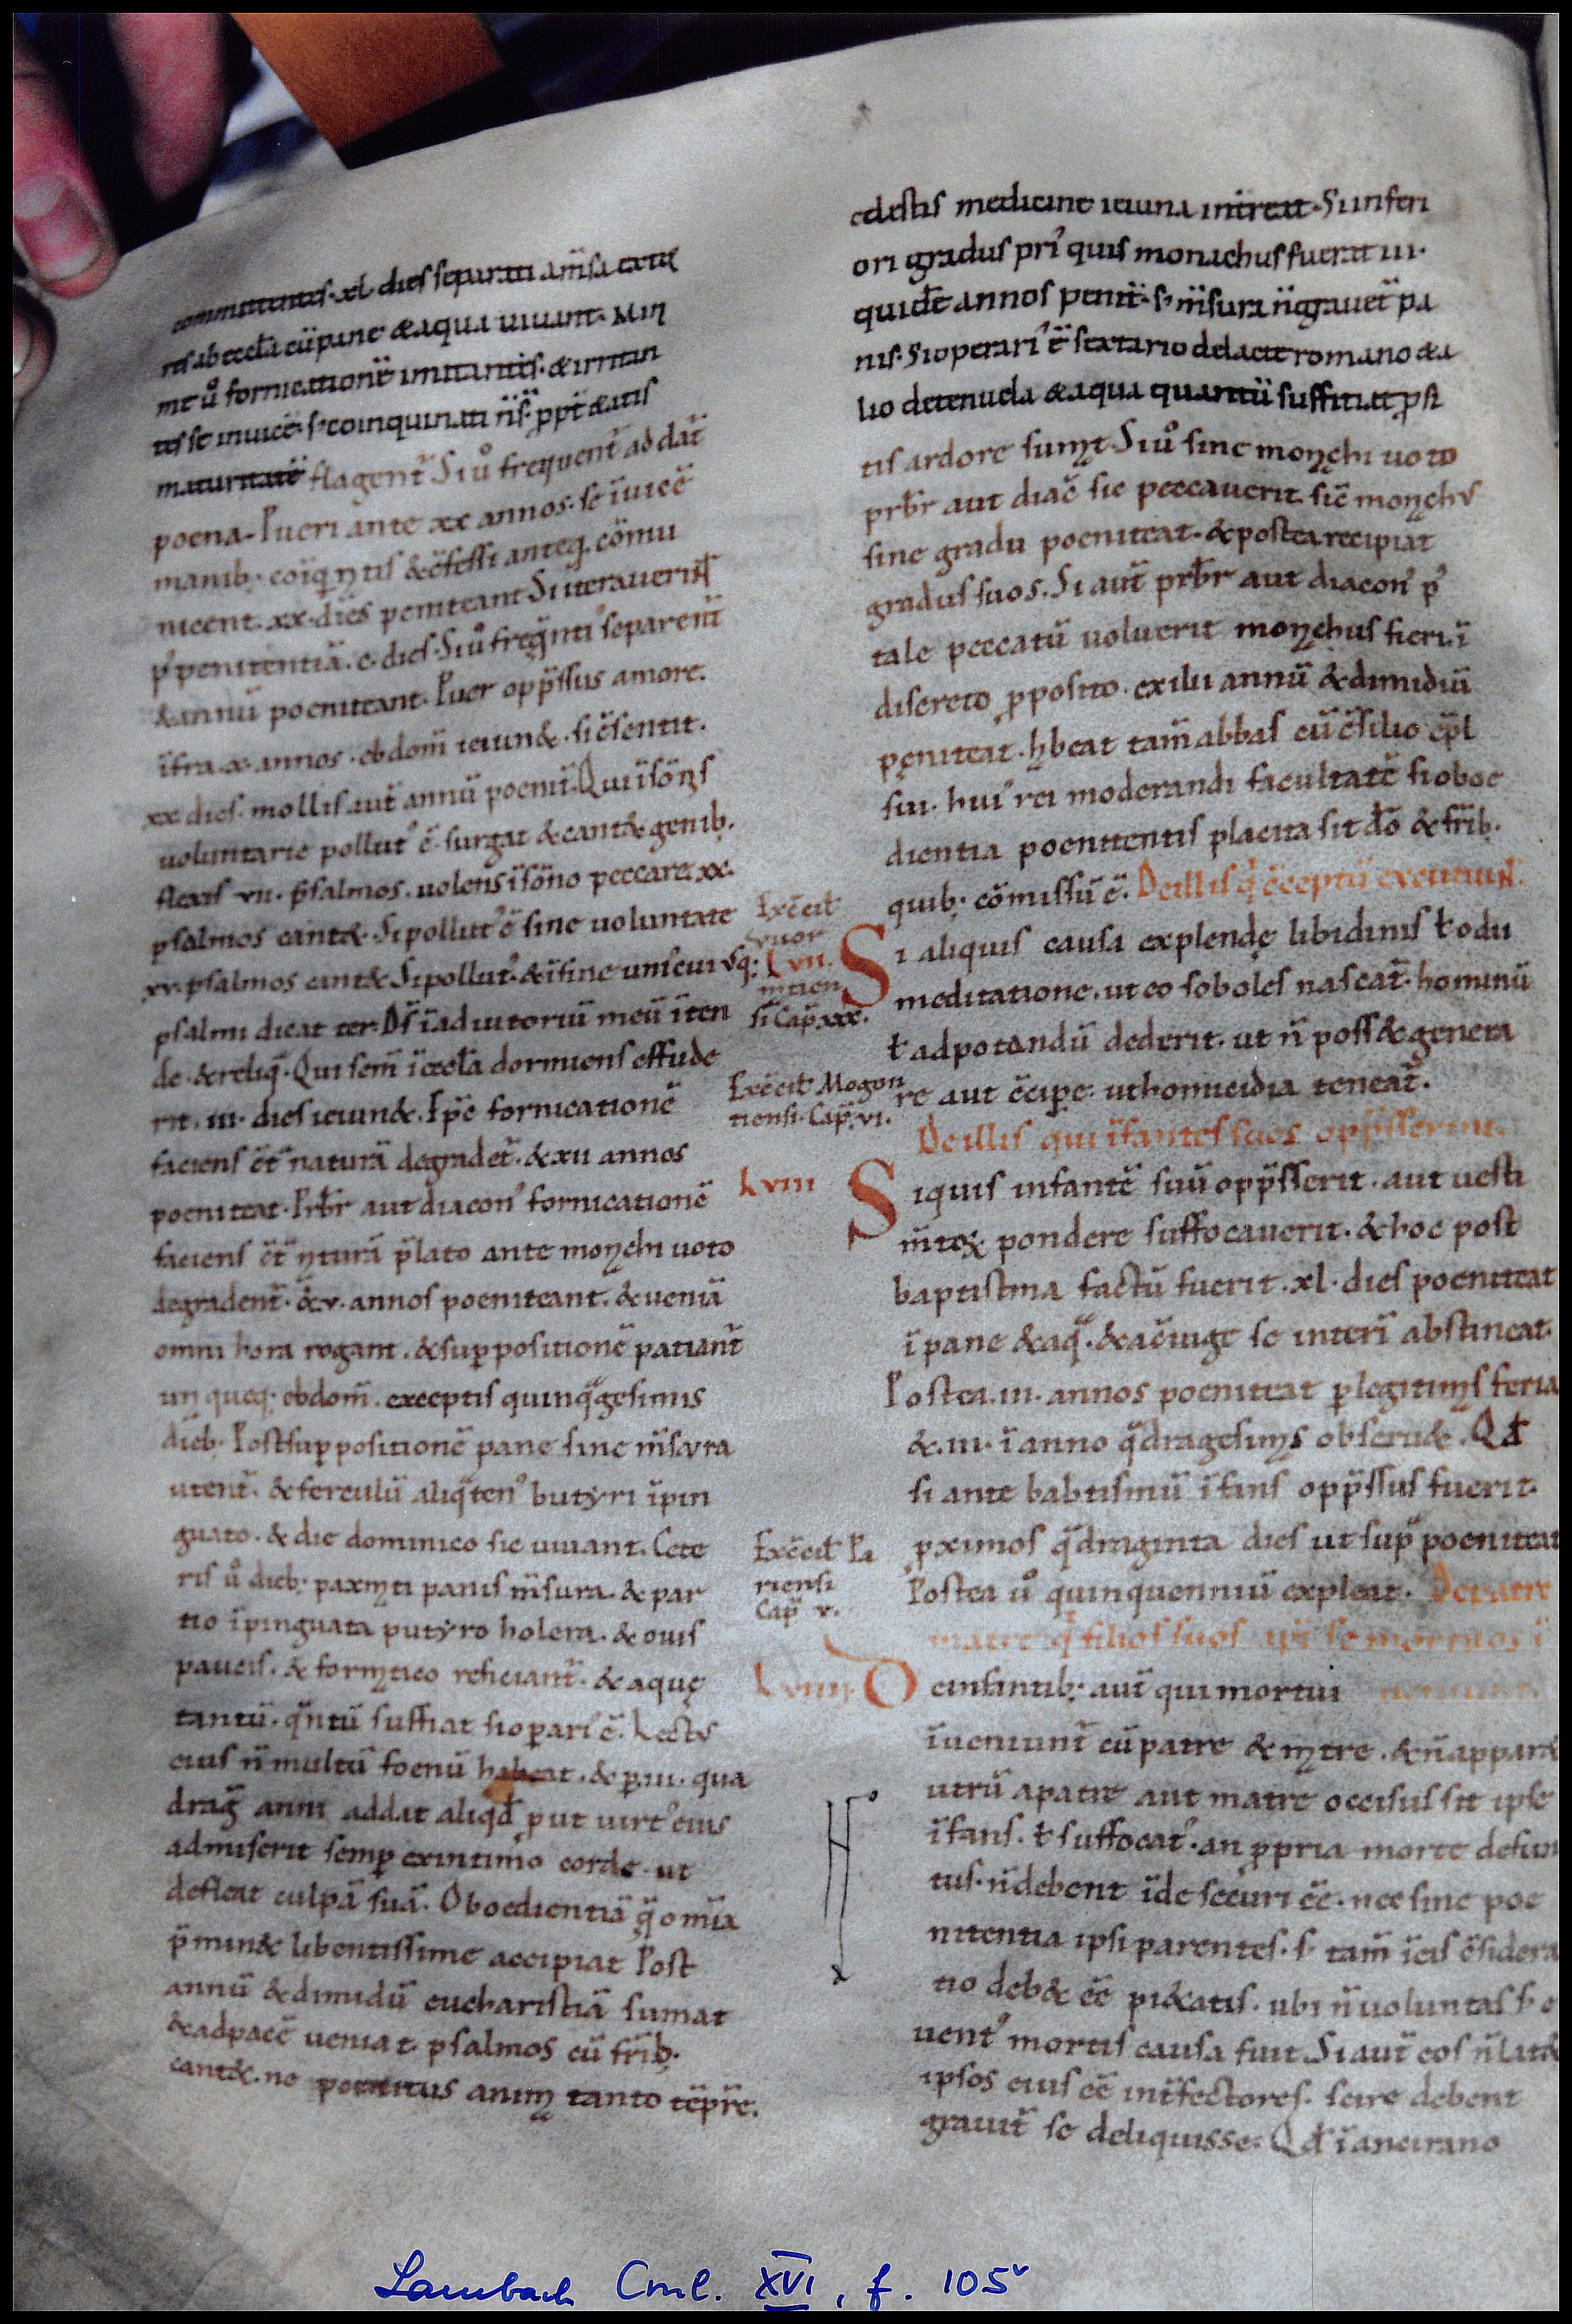 committentes. xl. dies separati amsa caritatis
nis ab eccła cū pane & aqua uiuant. Min
mt ů fornicationē imitantes. & irritan
tes se inuicē. s; coinquinati ñ s̄. ppt̄ ætatis
maturitatē flagent̄ Siů frequent̄ addat̄
poena. Pueri ante xx annos. se īuicē
manib; coīq̨ntis & c̄fessi anteq̨. cōmu
nicent. xx. dies peniteant Si iterauerint
p' penitentiā. c. dies. Siů freq̄nti' separent̄
& annū poeniteant. Puer opp̄ssus amore.
īfra. x. annos. ebdom̄ ieiun&. si c̄sentit.
xx dies. mollis aut̄ annū poenit̄. Qui ī sōnis
uoluntarie pollut' ē. surgat & cant& genib;
flexis vii. psalmos. uolens ī sōno peccare xx.
psalmos cant&. Si pollut' ē sine uoluntate
xv. psalmos cant& Si pollut'. & ī fine uniscuivsq;
psalmi dicat ter. Ds̄ ī adiutoriū meū īten
de. & reliq̄. Qui sem̄ ī eccła dormiens effude
rit. iii. dies ieiun&. Ip̄e fornicationē
faciens c̄t̄ naturā degradet̄. & xii annos
poeniteat. Prb̄r aut diacon' fornicationē
faciens c̄t̄ nturā p̄lato ante monchi uoto
degradent̄. & v. annos poeniteant. & ueniā
omni hora rogant. & sup positionē patiant̄
un queq; ebdom̄. exceptis quinq̄gesimis
dieb. Post sup positionē pane sine m̄svra
utent̄. & ferculū aliq̄ten' butyri īpin
guato. & die dominico sic uiuant. Cete
ris ů dieb; paxmti panis m̄sura. & par
uo īpinguata putyro holera. & ouis
paucis. & formtico reficiant̄. & aquę
tantū. q̄ntū sufficiat si opari' ē. Lectv
eius ñ multū foenū habeat. & p. iii. qua
drag̅ anni addat aliqd̄ put uirt' eius
admiserit semp ex intimo corde. ut
defleat culpā suā. Oboedientiā q̄ om̄ia
p̄min& libentissime accipiat Post
annū & dimidiū eucharistiā sumat
& ad pacē ueniat. psalmos cū fr̄ib;
cant&. ne penitus anim tanto tēpr̄e.
cęlestis medicine ieiuna intreat. Si inferi
ori gradus pri' quis monachus fuerit iii.
quidē annos penit̄. s; m̄sura ñ grauet̄ pa
nis. Si operari' ē sextario de lacte romano & a
lio de tenucla & aqua quantū sufficiat p sī
tis ardore sumt. Siů sine monchi uoto
prb̄r aut diac̄ sic peccauerit. sic monchv
sine gradu poeniteat. & postea recipiat
gradus suos. Si aut̄ prb̄r aut diacon' p'
tale peccatū uoluerit monchus fieri. ī
discreto pposito. exilii annū & dimidiū
pęniteat. hbeat tam̄ abbas cū c̄silio ep̄i
sui. hui' rei moderandi facultatē si oboe
dientia poenitentis placita sit dō & fr̄ib;
quib; cōmissū ē. De illis q̇ c̄ceptū excutiunt.
Excēcił
vuor
Lvii.
mtien
si Cap̄ xxx.
Si aliquis causa explendę libidinis ł odii
meditatione. ut eo soboles nascat̄. hominū
ł ad potandū dederit. ut ñ poss& genera
re aut c̄cipe. ut homicidia teneat̄.
Excēcił Mogon
tiensi. Cap̄. vi.
De illis qui īfantes suos opp̄sserint.
Lviii
Si quis infantē suū opp̄sserit. aut uesti
m̄toꝝ pondere suffocauerit. & hoc post
baptisma factū fuerit. xl. dies poeniteat
ī pane & aq̄. & a c̄iuge se interī abstineat.
Postea. iii. annos poeniteat p legitims feria
&. iii. ī anno q̄dragesims obseru&. Qđ
si ante babtismū īfans opp̄ssus fuerit.
pximos q̄draginta dies ut sup̄ poeniteat
Postea ů quinquenniū expleat. De patre
Excēcił Pa
riensi
Cap̄ v.
matre q̇ filios suos ī
Lviiii.
De infantib; aut̄ qui mortui
īueniunt̄ cū patre & mtre. & ñ appar&
utrū a patre aut matre occisus sit ipse
īfans. ł suffocat'. an ppria morte defun
tus. ñ debent īde securi eē. nec sine poe
nitentia ipsi parentes. s; tam̄ ī eis c̄sidera
tio deb& eē pi&atis. ubi ñ uoluntas s; e
uent' mortis causa fuit. Si aut̄ eos ñ lat&
ipsos eius eē int̄fectores. scire debent
grauit̄ se deliquisse. Qđ ī ancirano
Lambach Cml. XVI, f. 105v